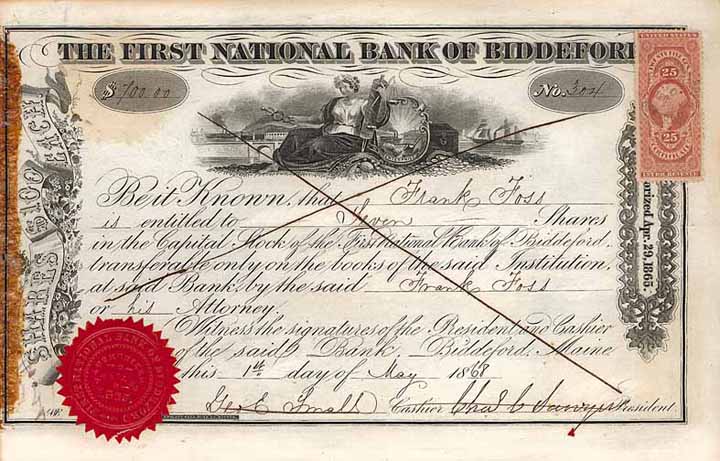 THE FIRST NATIONAL BANK OF BIDDEFORD
$700.00
No. 304
UNITED STATES
25
25
CERTIFICATE
INTER. REVENUE
SHARES $100 EACH
Authorized Apr. 29, 1865.
Be it Known, that Frank Foss
is entitled to Seven Shares
in the Capital Stock of the First National Bank of Biddeford,
transferable only on the books of the said Institution,
at said Bank, by the said Frank Foss
or his Attorney.
Witness the signatures of the President and Cashier
of the said Bank, Biddeford, Maine.
this 1st day of May 1868
Geo E Small Cashier Chas C Sawyer President.